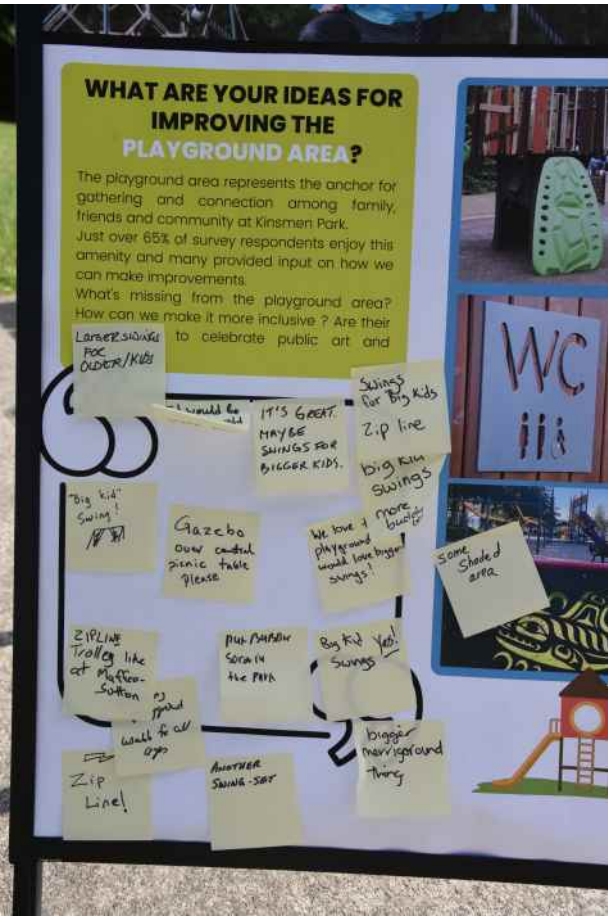 WHAT ARE YOUR IDEAS FOR
IMPROVING THE
PLAYGROUND AREA?
The playground area represents the anchor for
gathering and connection among family,
friends and community at Kinsmen Park.
Just over 65% of survey respondents enjoy this
amenity and many provided input on how we
can make improvements.
What's missing from the playground area?
How can we make it more inclusive ? Are their
to celebrate public art and
LARGER SWINGS
FOR
OLDER/KIDS
would be
IT'S GREAT.
MAYBE
SWINGS FOR
BIGGER KIDS.
Swings
for Big Kids
Zip line
big kid
swings
more
WC
"Big kid"
Swing!
Gazebo
over central
picnic table
please
We love
playground
would love bigger
swings!
Some
Shaded
area
ZIPLINE
Trolley like
at Maffeo-
Sutton
in
the PARK
Big Kid Yes!
Swings
for all
ages
Zip
Line!
ANOTHER
SWING-SET
bigger
merrigoround
thing